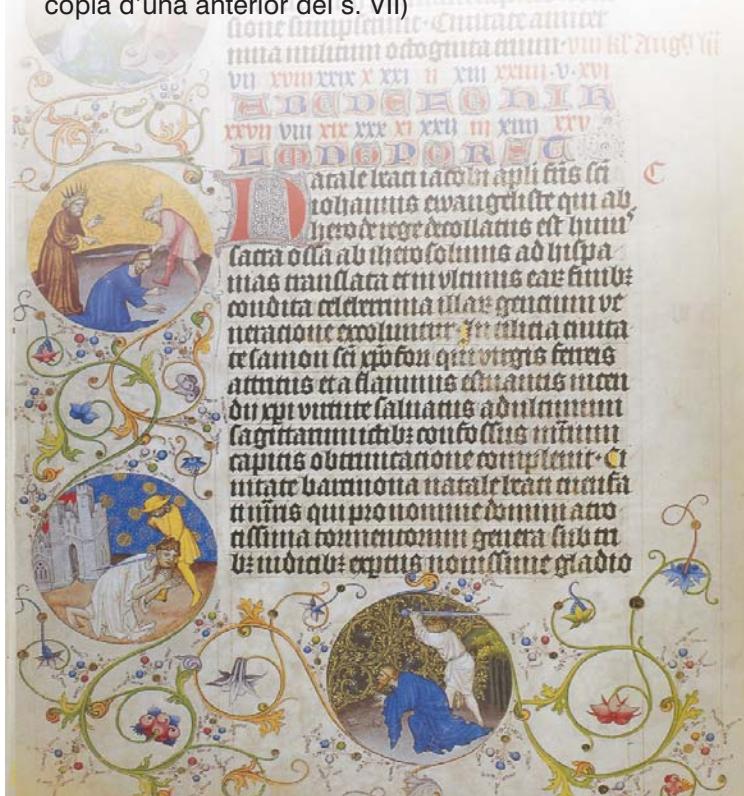 còpia d'una anterior del s. VII)
sione simplemte. Civitate amitet
nina militum octoginta trium. viii kl Augti
vii xviii xxix x xxi ii xiii xxiiii v xvi
A B C D E F G H I K
xxvii viii xix xxx xi xxii iii xiiii xxv
L M N O P Q R S T U
C
Natale beati iacobi apli fris sci
iohannis ewangeliste qui ab
herode rege decollatus est huiu
sacra ossa ab iherosolimis ad hispa
nias translata et in ultimis ear finibz
condita celeberrima illar gentium ve
neratione excoluntur. In licia civita
te samon sci xpofori qui virgis ferreis
attritus et a flammis estuantis incen
dii xpi virtute salvatus ad ultimum
sagittarum ictibz confossus mrium
capitis obtruncatione complevit. Ci
vitate barcinona natale beati cucufa
ti mris qui pro nomine domini atro
cissima tormentorum genera sub tri
bz iudicibz exptus novissime gladio